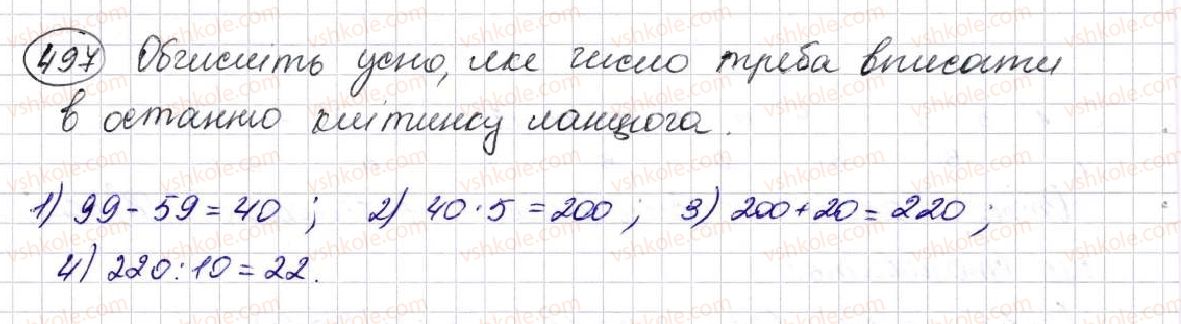 497 Обчисліть усно, яке число треба вписати
в останню клітинку ланцюга.
1) 99 - 59 = 40 ; 2) 40 · 5 = 200 ; 3) 200 + 20 = 220 ;
4) 220 : 10 = 22.